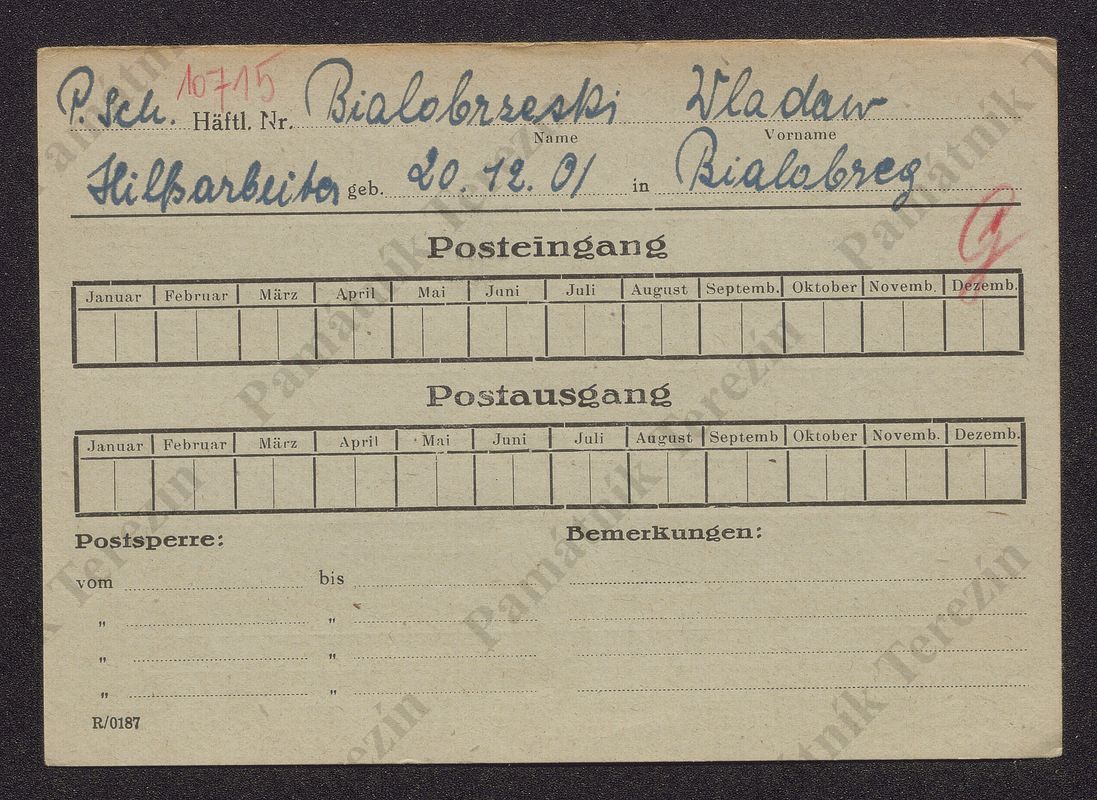 P. Sch. 10715 Bialobrzeski Wladaw
Häftl. Nr.
Name Vorname
Hilfsarbeiter geb. 20. 12. 01 in Bialobreg
Posteingang
Januar Februar März April Mai Juni Juli August Septemb. Oktober Novemb. Dezemb.
Postausgang
Januar Februar März April Mai Juni Juli August Septemb Oktober Novemb. Dezemb.
Postsperre: Bemerkungen:
vom bis
" "
" "
" "
R/0187
Památník Terezín